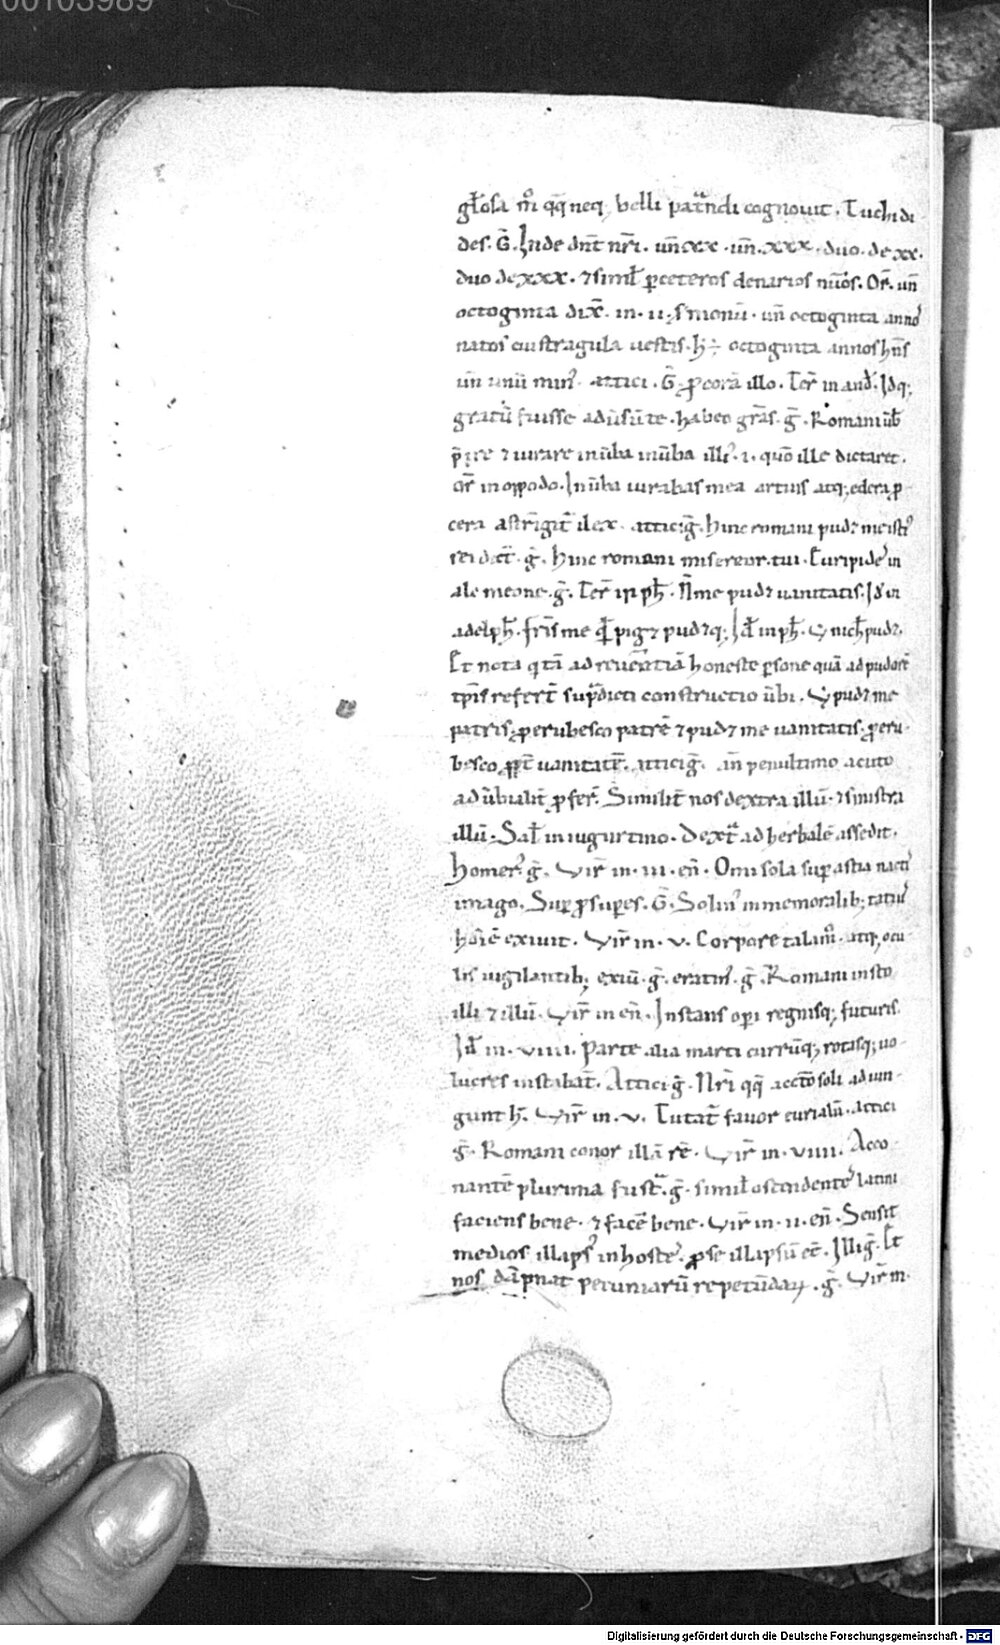 00103989
gl̄osa m̊ qq̄ neq; belli patͣndi cognouit. Tuchidi
des. G̅. Inde dn̄t nr̄i. un̄.xx. un̄.xxx. duo. de xx.
duo de xxx. ⁊ simil̄ ꝑ ceteros denarios nūos. Or̄. un̄
octoginta dix̄. in. ii. s̾monū. un̄ octoginta anno
natos cui stragula uestis. h̄ ÷ octoginta annos hn̄s
un̄ unū min᾿. attici. G̅. ꝓ cora illo. Ter̄ in and̄. Idq;
gratū fuisse aduersū te. habeo gr̄as. g̅. Romani ūb
p̄ ire ⁊ iurare in ūba in ūba illi᾿.i. quō ille dictaret.
or̄ in oppodo. In ūba iurabas mea artius atq; edera ꝓ
cera astringit̄ ilex. attici g̅. hinc romani pud⁊ me isti᾿
rei dict̄. g̅. hinc romani misereor. tui. Euripides in
alcmeone. g̅. Ter̄ in ph̄. N̄ me pud⁊ uanitatis. Id̄ in
adelph̄. fr̄is me qͥd̄ pig⁊ pud⁊q; Id̄ in ph̄.
Et nota q tā ad reuerentiā honeste ꝑsone quā ad pudorē
tp̄is refert̄ supͣdicti constructio ūbi. pud⁊ me
patris. ꝓ erubesco patrē ⁊ pud⁊ me uanitatis. ꝓ eru
besco ꝓpt̄ uanitatē. attici g̅. an̄ penultimo acuto
ad ūbialit̄ ꝓfer̄. Similit̄ nos dextra illū. ⁊ sinistra
illū. Sal̄ in iugurtino. Dextͣ ad herbalē assedit.
homer᾿ g̅. Vir̄ in. iii. en̄. Omi sola sup astia nacti᾿
imago. Suꝑ ꝓ suꝑes. G̅. Solin᾿ in memoralib; tatius
hoīē exiuit. Vir̄ in. v. Corpore talam̊. atq; ocu
lis uigilantib; exiū. g̅. g̅. Romani insto
illi ⁊ illū. Vir̄ in en̄. Instans opi regnisq; futuris.
Id̄ in. viiii. Parte alia marti currūq; rotasq; uo
lucres instabat̄. Attici g̅. Nr̄i qq̄ acctō soli adiun
gunt h̄. Vir̄ in. v. Tutat̄ fauor eurialū. attici
g̅. Romani conor illā rē. Vir̄ in. viiii. Acco
nantē plurima fustͣ. g̅. simil̄ ostendentes latini
faciens bene. ⁊ facē bene. Vir̄ in. ii. en̄. Sensit
medios illaps᾿ in hostes. ꝓ se illapsū eē. Illi g̅. Et
nos dāpnat pecuniarū repetūdaꝝ. g̅. Vir̄ in.
Digitalisierung gefördert durch die Deutsche Forschungsgemeinschaft - DFG